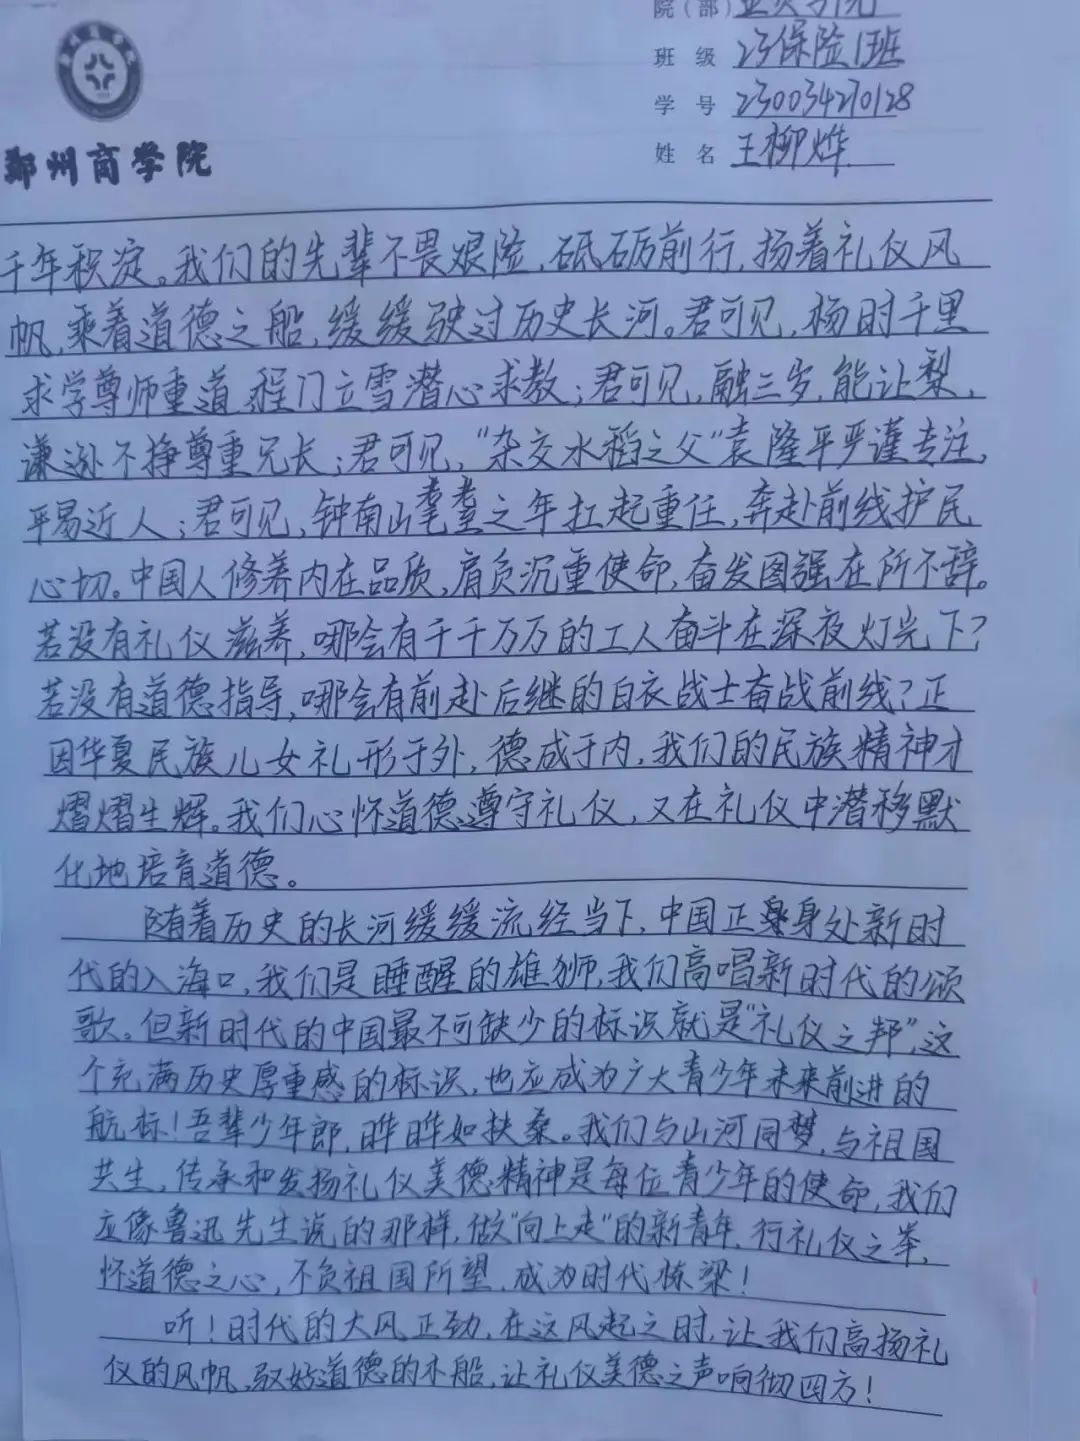 院（部）
班 级 23保险1班
学 号 230034270128
姓 名 王柳烨
郑州商学院
千年积淀。我们的先辈不畏艰险，砥砺前行，扬着礼仪风
帆，乘着道德之船，缓缓驶过历史长河。君可见，杨时千里
求学尊师重道，程门立雪潜心求教；君可见，融三岁，能让梨，
谦逊不挣尊重兄长；君可见，“杂交水稻之父”袁隆平严谨专注，
平易近人；君可见，钟南山耄耋之年扛起重任，奔赴前线护民
心切。中国人修养内在品质，肩负沉重使命，奋发图强，在所不辞。
若没有礼仪滋养，哪会有千千万万的工人奋斗在深夜灯光下？
若没有道德指导，哪会有前赴后继的白衣战士奋战前线？正
因华夏民族儿女礼形于外，德成于内，我们的民族精神才
熠熠生辉。我们心怀道德遵守礼仪，又在礼仪中潜移默
化地培育道德。
随着历史的长河缓缓流经当下，中国正身处新时
代的入海口，我们是睡醒的雄狮，我们高唱新时代的颂
歌。但新时代的中国最不可缺少的标识就是“礼仪之邦”，这
个充满历史厚重感的标识，也应成为广大青少年未来前进的
航标！吾辈少年郎，晔晔如扶桑。我们与山河同梦，与祖国
共生，传承和发扬礼仪美德精神是每位青少年的使命，我们
应像鲁迅先生说的那样，做“向上走”的新青年，行礼仪之举，
怀道德之心，不负祖国所望，成为时代栋梁！
听！时代的大风正劲，在这风起之时，让我们高扬礼
仪的风帆，驭好道德的木船，让礼仪美德之声响彻四方！